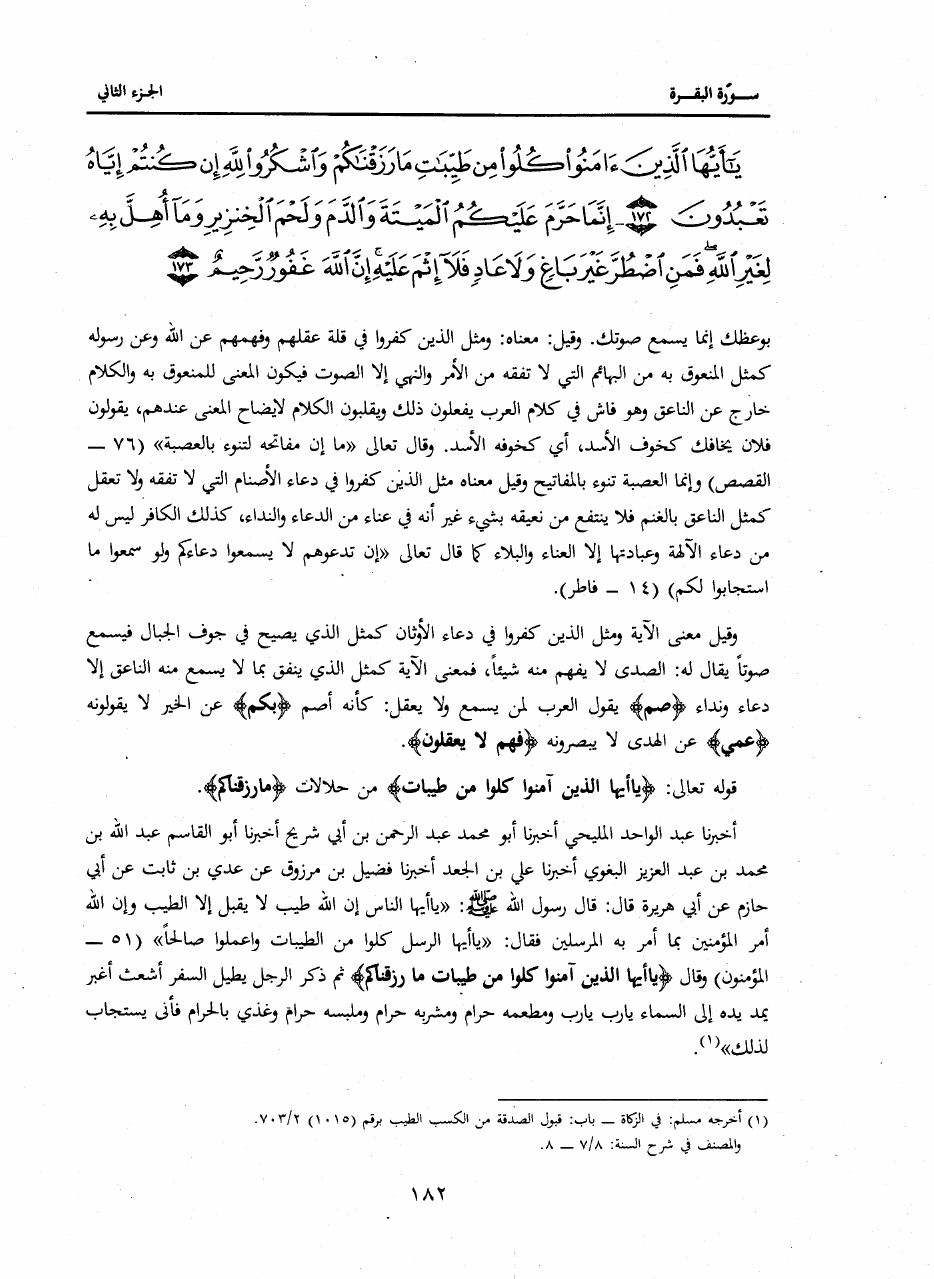 ســورة البقــرة
الجزء الثاني
يَـٰٓأَيُّهَا ٱلَّذِينَ ءَامَنُوا۟ كُلُوا۟ مِن طَيِّبَـٰتِ مَا رَزَقْنَـٰكُمْ وَٱشْكُرُوا۟ لِلَّهِ إِن كُنتُمْ إِيَّاهُ
تَعْبُدُونَ ١٧٢ إِنَّمَا حَرَّمَ عَلَيْكُمُ ٱلْمَيْتَةَ وَٱلدَّمَ وَلَحْمَ ٱلْخِنزِيرِ وَمَآ أُهِلَّ بِهِۦ
لِغَيْرِ ٱللَّهِ ۖ فَمَنِ ٱضْطُرَّ غَيْرَ بَاغٍ وَلَا عَادٍ فَلَآ إِثْمَ عَلَيْهِ ۚ إِنَّ ٱللَّهَ غَفُورٌ رَّحِيمٌ ١٧٣
بوعظك إنما يسمع صوتك. وقيل: معناه: ومثل الذين كفروا في قلة عقلهم وفهمهم عن الله وعن رسوله
كمثل المنعوق به من البهائم التي لا تفقه من الأمر والنهي إلا الصوت فيكون المعنى للمنعوق به والكلام
خارج عن الناعق وهو فاش في كلام العرب يفعلون ذلك ويقلبون الكلام لايضاح المعنى عندهم، يقولون
فلان يخافك كخوف الأسد، أي كخوفه الأسد. وقال تعالى «ما إن مفاتحه لتنوء بالعصبة» (٧٦ ــ
القصص) وإنما العصبة تنوء بالمفاتيح وقيل معناه مثل الذين كفروا في دعاء الأصنام التي لا تفقه ولا تعقل
كمثل الناعق بالغنم فلا ينتفع من نعيقه بشيء غير أنه في عناء من الدعاء والنداء، كذلك الكافر ليس له
من دعاء الآلهة وعبادتها إلا العناء والبلاء كما قال تعالى «إن تدعوهم لا يسمعوا دعاءكم ولو سمعوا ما
استجابوا لكم) (١٤ ــ فاطر).
وقيل معنى الآية ومثل الذين كفروا في دعاء الأوثان كمثل الذي يصيح في جوف الجبال فيسمع
صوتاً يقال له: الصدى لا يفهم منه شيئاً، فمعنى الآية كمثل الذي ينفق بما لا يسمع منه الناعق إلا
دعاء ونداء ﴿صم﴾ يقول العرب لمن يسمع ولا يعقل: كأنه أصم ﴿بكم﴾ عن الخير لا يقولونه
﴿عمي﴾ عن الهدى لا يبصرونه ﴿فهم لا يعقلون﴾.
قوله تعالى: ﴿ياأيها الذين آمنوا كلوا من طيبات﴾ من حلالات ﴿مارزقناكم﴾.
أخبرنا عبد الواحد المليحي أخبرنا أبو محمد عبد الرحمن بن أبي شريح أخبرنا أبو القاسم عبد الله بن
محمد بن عبد العزيز البغوي أخبرنا علي بن الجعد أخبرنا فضيل بن مرزوق عن عدي بن ثابت عن أبي
حازم عن أبي هريرة قال: قال رسول الله ﷺ: «ياأيها الناس إن الله طيب لا يقبل إلا الطيب وإن الله
أمر المؤمنين بما أمر به المرسلين فقال: «ياأيها الرسل كلوا من الطيبات واعملوا صالحاً» (٥١ ــ
المؤمنون) وقال ﴿ياأيها الذين آمنوا كلوا من طيبات ما رزقناكم﴾ ثم ذكر الرجل يطيل السفر أشعث أغبر
يمد يده إلى السماء يارب يارب ومطعمه حرام ومشربه حرام وملبسه حرام وغذي بالحرام فأنى يستجاب
لذلك»(١).
(١) أخرجه مسلم: في الزكاة ــ باب: قبول الصدقة من الكسب الطيب برقم (١٠١٥) ٧٠٣/٢.
والمصنف في شرح السنة: ٧/٨ ــ ٨.
١٨٢